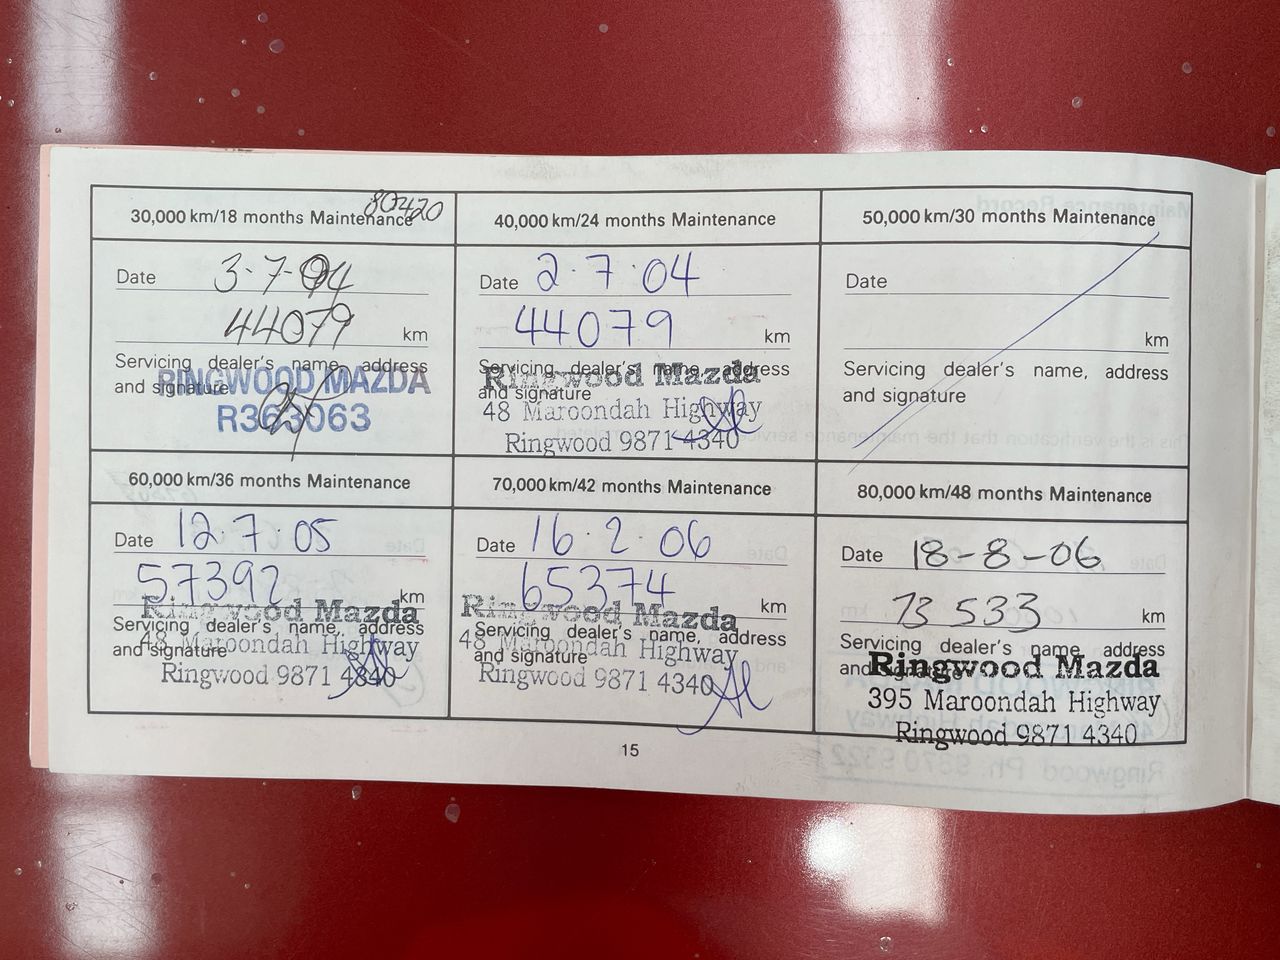 30,000 km/18 months Maintenance 80420
Date 3-7-04
44079 km
Servicing dealer's name, address
and signature
RINGWOOD MAZDA
R363063
40,000 km/24 months Maintenance
Date 2.7.04
44079 km
Servicing dealer's name, address
and signature
Ringwood Mazda
48 Maroondah Highway
Ringwood 9871 4340
50,000 km/30 months Maintenance
Date
km
Servicing dealer's name, address
and signature
60,000 km/36 months Maintenance
Date 12.7.05
57392 km
Servicing dealer's name, address
and signature
Ringwood Mazda
48 Maroondah Highway
Ringwood 9871 4340
70,000 km/42 months Maintenance
Date 16.2.06
65374 km
Servicing dealer's name, address
and signature
Ringwood Mazda
48 Maroondah Highway
Ringwood 9871 4340
80,000 km/48 months Maintenance
Date 18-8-06
73533 km
Servicing dealer's name, address
and signature
Ringwood Mazda
395 Maroondah Highway
Ringwood 9871 4340
15